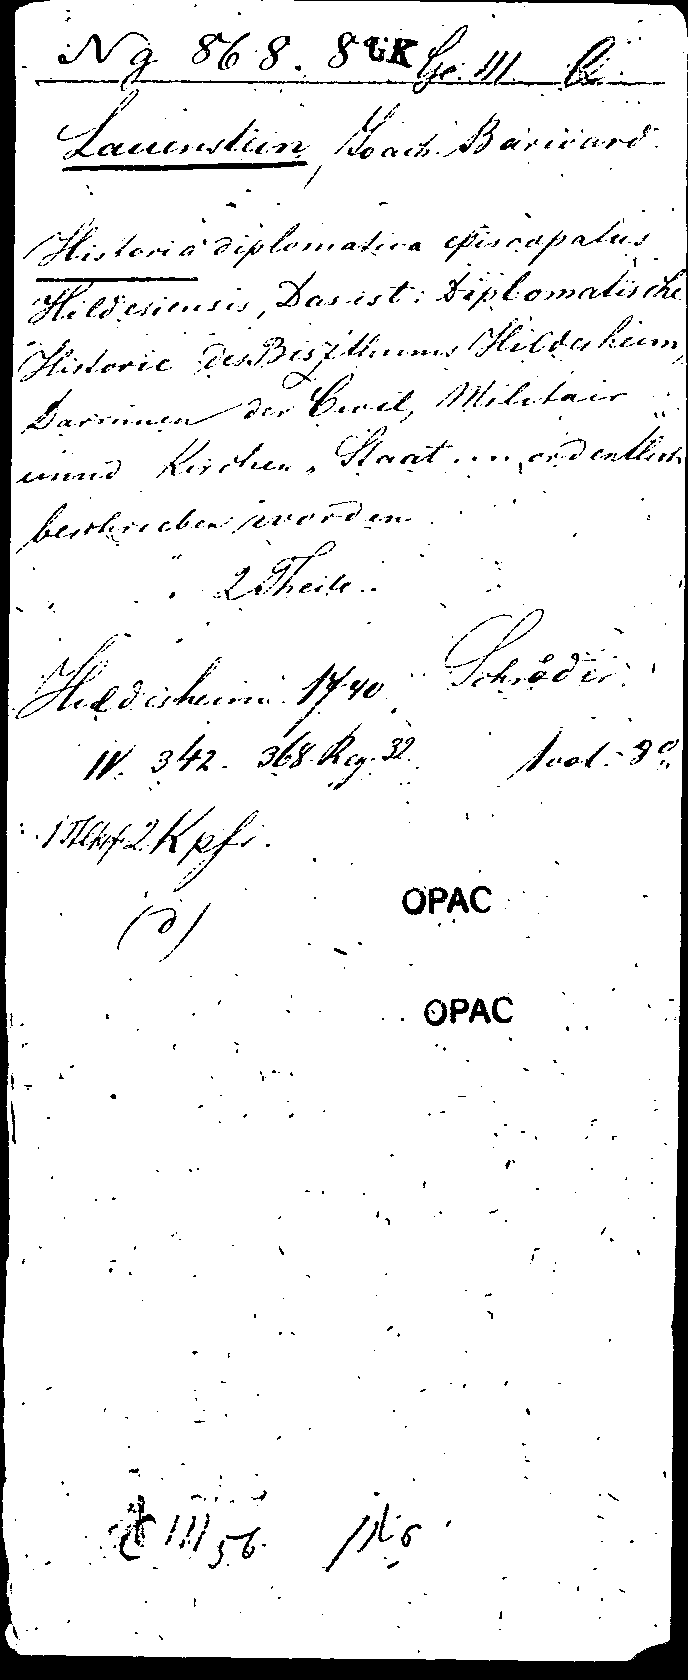 Ng 868. 8° GK Ge. III.
Lauenstein, Joach. Barward.
Historia diplomatica episcopatus
Hildesiensis, Das ist: Diplomatische
Historie des Biszthums Hildesheim,
Darinnen der Civil, Militair
unnd Kirchen-Staat .... ordentlich
beschrieben worden
2 Theile.
Hildesheim 1740. Schröder.
IV. 342. 368. Reg. 32. 8°.
2 Kpf.
(d)
OPAC
OPAC
III 56